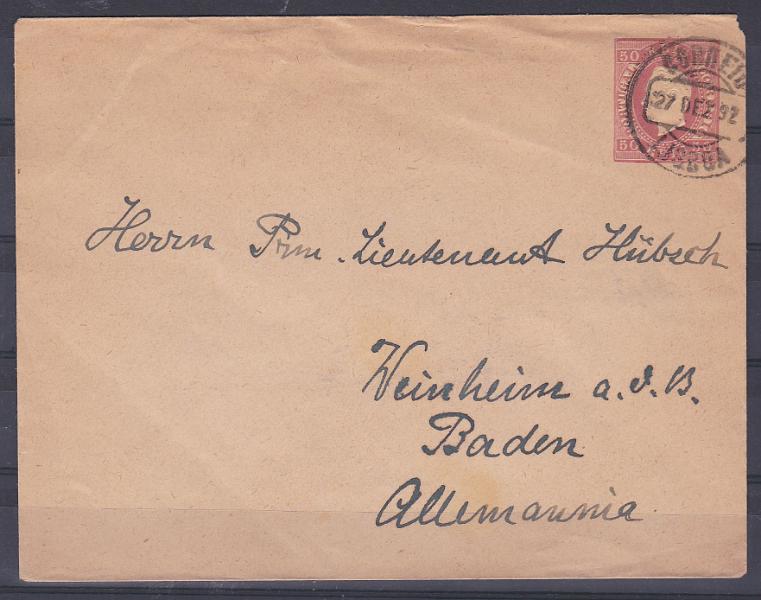 50
CORREIO
27 DEZ 92
50
LISBOA
Herrn Prm. Lieutenant Hübsch
Weinheim a. d. B.
Baden
Allemannia